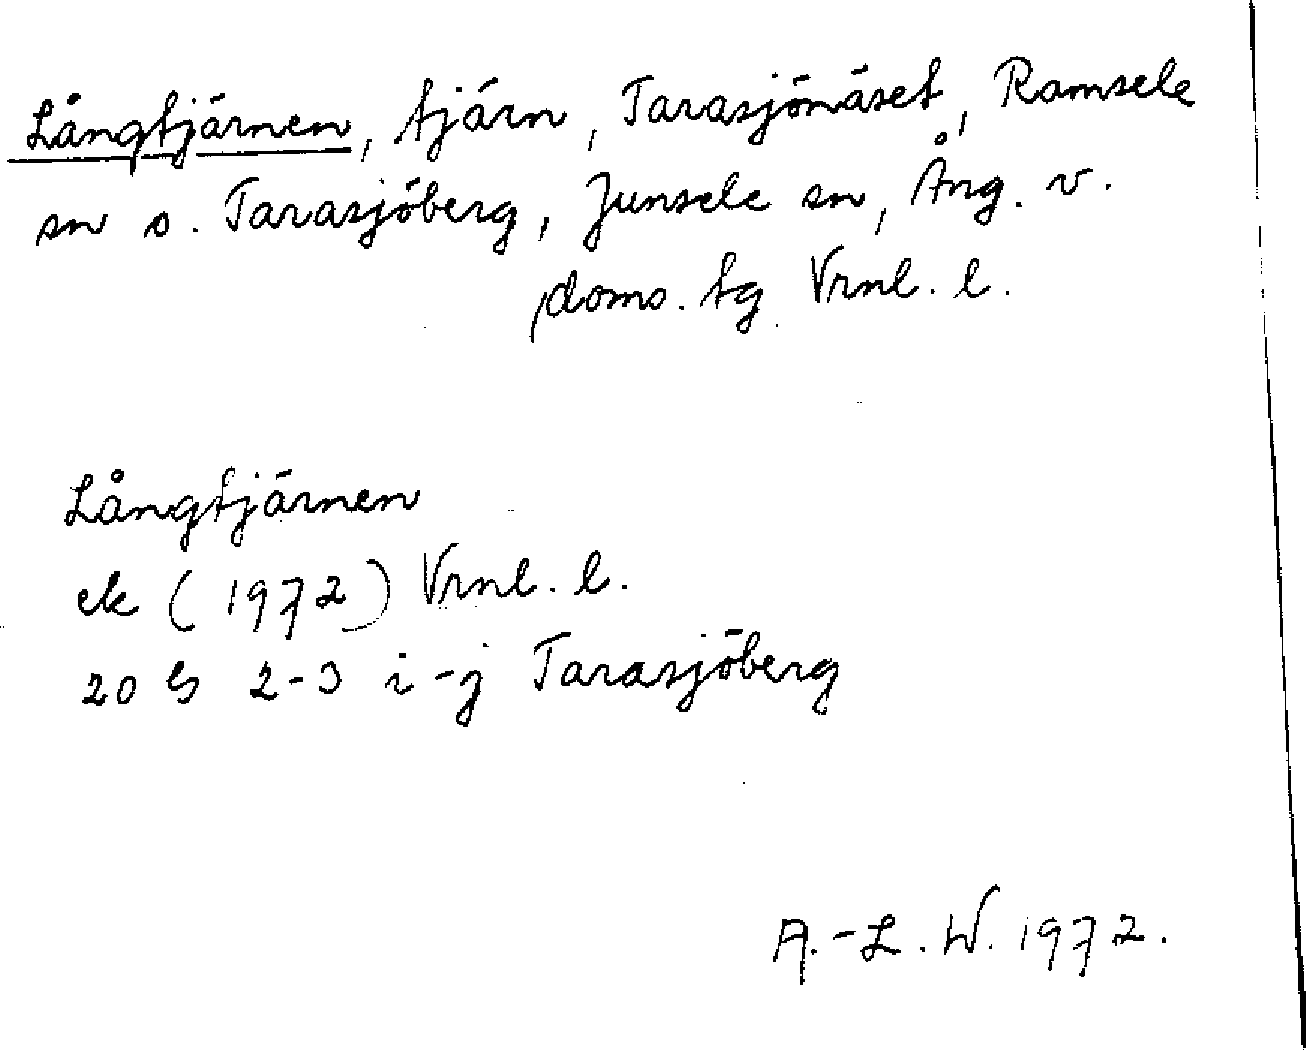 Långtjärnen, tjärn, Tarasjönäset, Ramsele
sn o. Tarasjöberg, Junsele sn, Ång. v.
doms. tg Vrnl. l.
Långtjärnen
ek (1972) Vrnl. l.
20 G 2-3 i-j Tarasjöberg
A.-L. W. 1972.